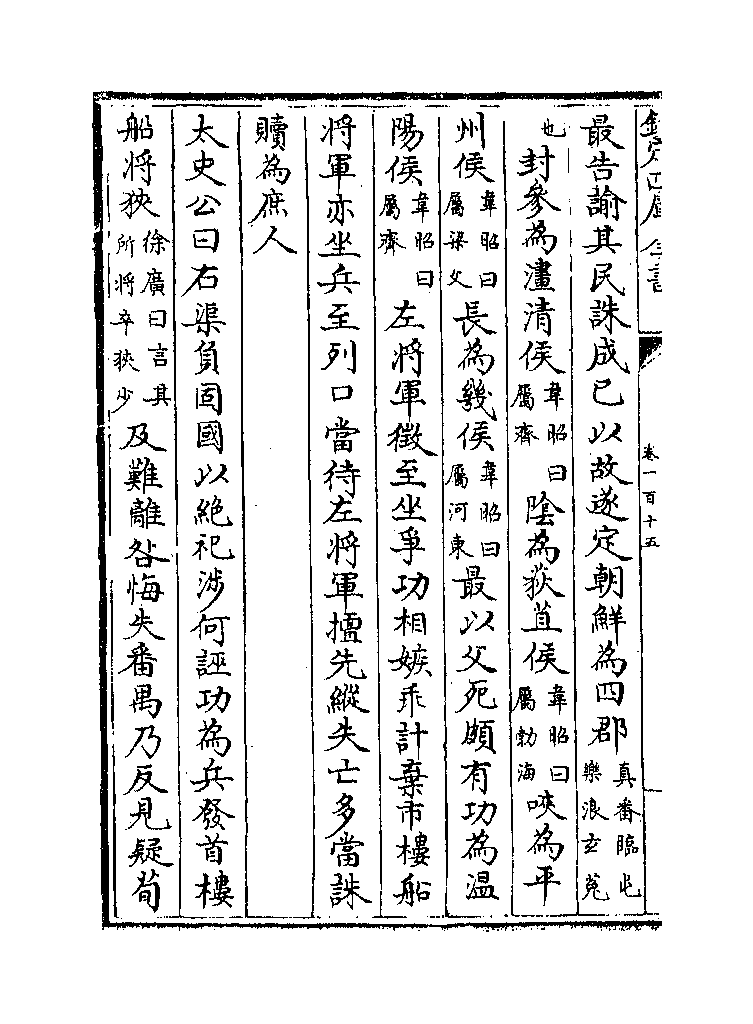 欽定四庫全書
卷一百十五
最告諭其民誅成已以故遂定朝鮮為四郡真番臨屯樂浪玄菟
也封參為澅清侯韋昭曰屬齊陰為荻苴侯韋昭曰屬勃海唊為平
州侯韋昭曰屬梁父長為幾侯韋昭曰屬河東最以父死頗有功為温
陽侯韋昭曰屬齊左將軍徵至坐爭功相嫉乖計棄市樓船
將軍亦坐兵至列口當待左將軍擅先縱失亡多當誅
贖為庶人
太史公曰右渠負固國以絶祀涉何誣功為兵發首樓
船將狹徐廣曰言其所將卒狹少及難離咎悔失番禺乃反見疑荀